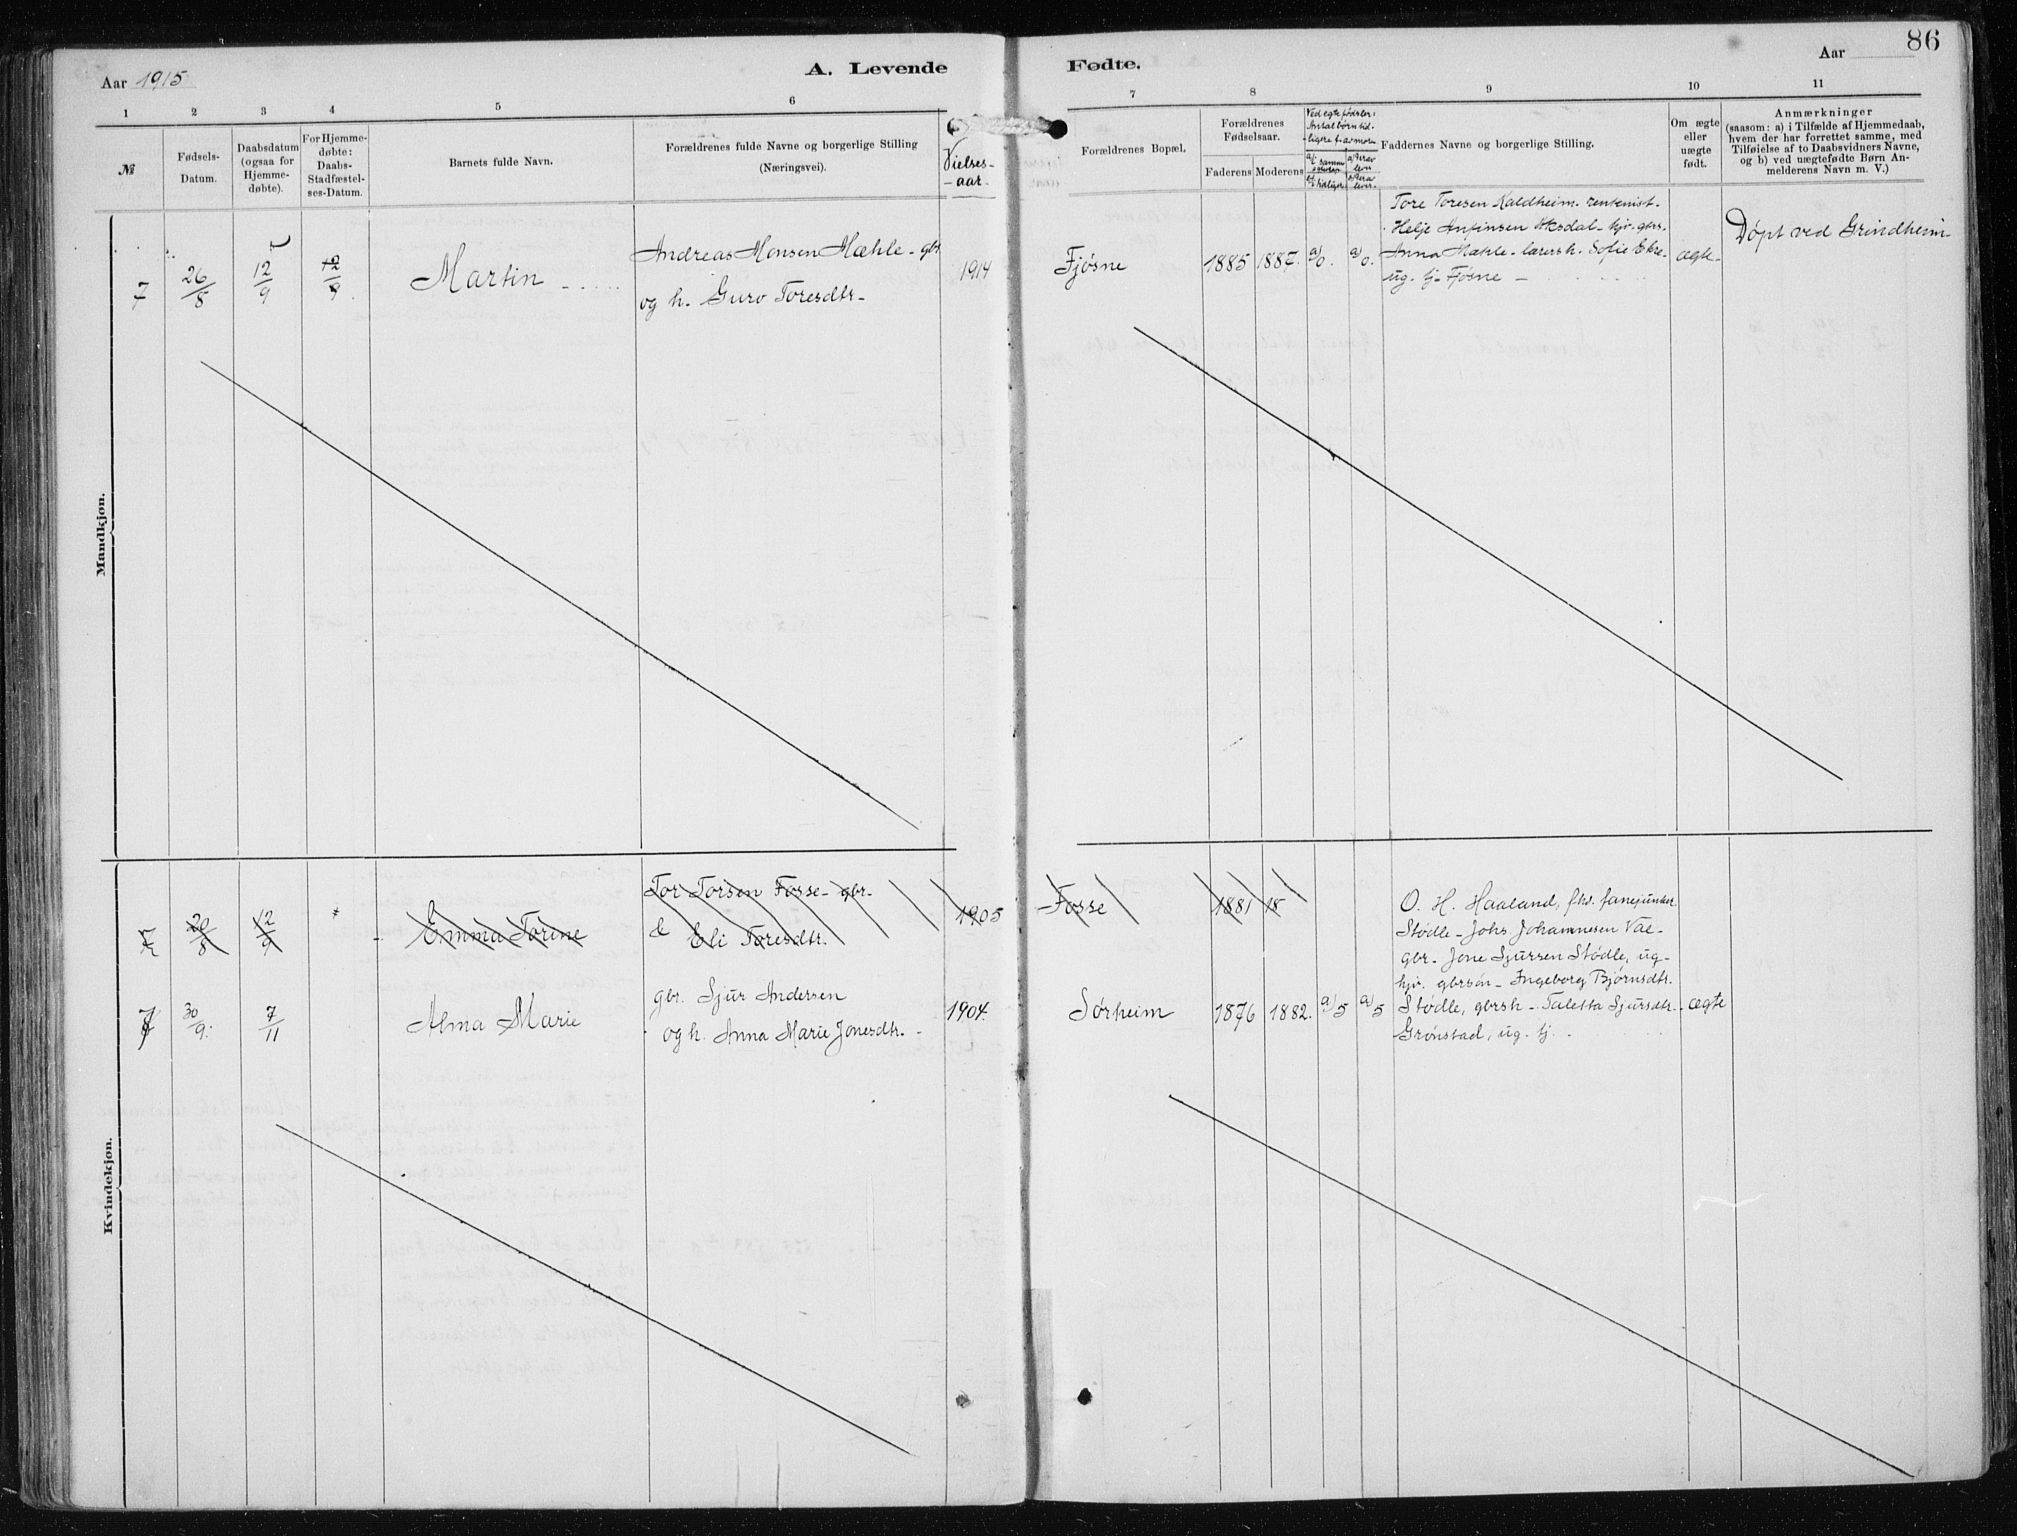 Aar 1915
A. Levende
Fødte.
Aar
86
1 2 3 4 5 6
7 8 9 10 11
№
Fødsels-
Datum.
Daabsdatum
(ogsaa for
Hjemme-
døbte).
For Hjemme-
døbte:
Daabs-
Stadfæstel-
ses-Datum.
Barnets fulde Navn.
Forældrenes fulde Navne og borgerlige Stilling
(Næringsvei).
Vielses-
-aar.
Forældrenes Bopæl,
Forældrenes
Fødselsaar.
Faderens Moderens
Ved egtefødsler:
Antal børn tid-
ligere f. av mor.
Faddernes Navne og borgerlige Stilling.
Om ægte
eller
uægte
født.
Anmærkninger
(saasom: a) i Tilfælde af Hjemmedaab,
hvem der har forrettet samme, med
Tilføielse af to Daabsvidners Navne,
og b) ved uægtefødte Børn An-
melderens Navn m. V.)
Mandkjøn.
7 26/8 12/9 12/9 Martin
Andreas Monsen Mæhle - gbr
og h. Guro Toresdtr-
1914
Fjøsne
1885 1887. a/0. a/0.
Tore Toresen Kaldheim. rentenist-
Helje Anfinsen Aksdal- kjr. gbrs.
Anna Mæhle- lærersh. Sofie Ekre-
ug. tj- Fjøsne -
ægte-
Døpt ved Grindheim-
Kvindekjøn.
7 20/8 12/9 Emma Torine
Tor Torsen Fosse- gbr-
& Eli Toresdtr.
1905
Fosse
1881 18
7 30/9. 7/11 Alma Marie
gbr. Sjur Andersen
og h. Anna Marie Jonesdtr. -
1904.
Sørheim
1876 1882. a/5 a/5
O. H. Haaland, fhv. fanejunker
Stødle- Johs. Johannesen Vae-
gbr- Jone Sjursen Stødle, ug-
kjr. gbrsøn- Ingeborg Bjørnsdtr.
Stødle, gbrsh - Taletta Sjursdtr.
Grønstad, ug. tj. -
ægte